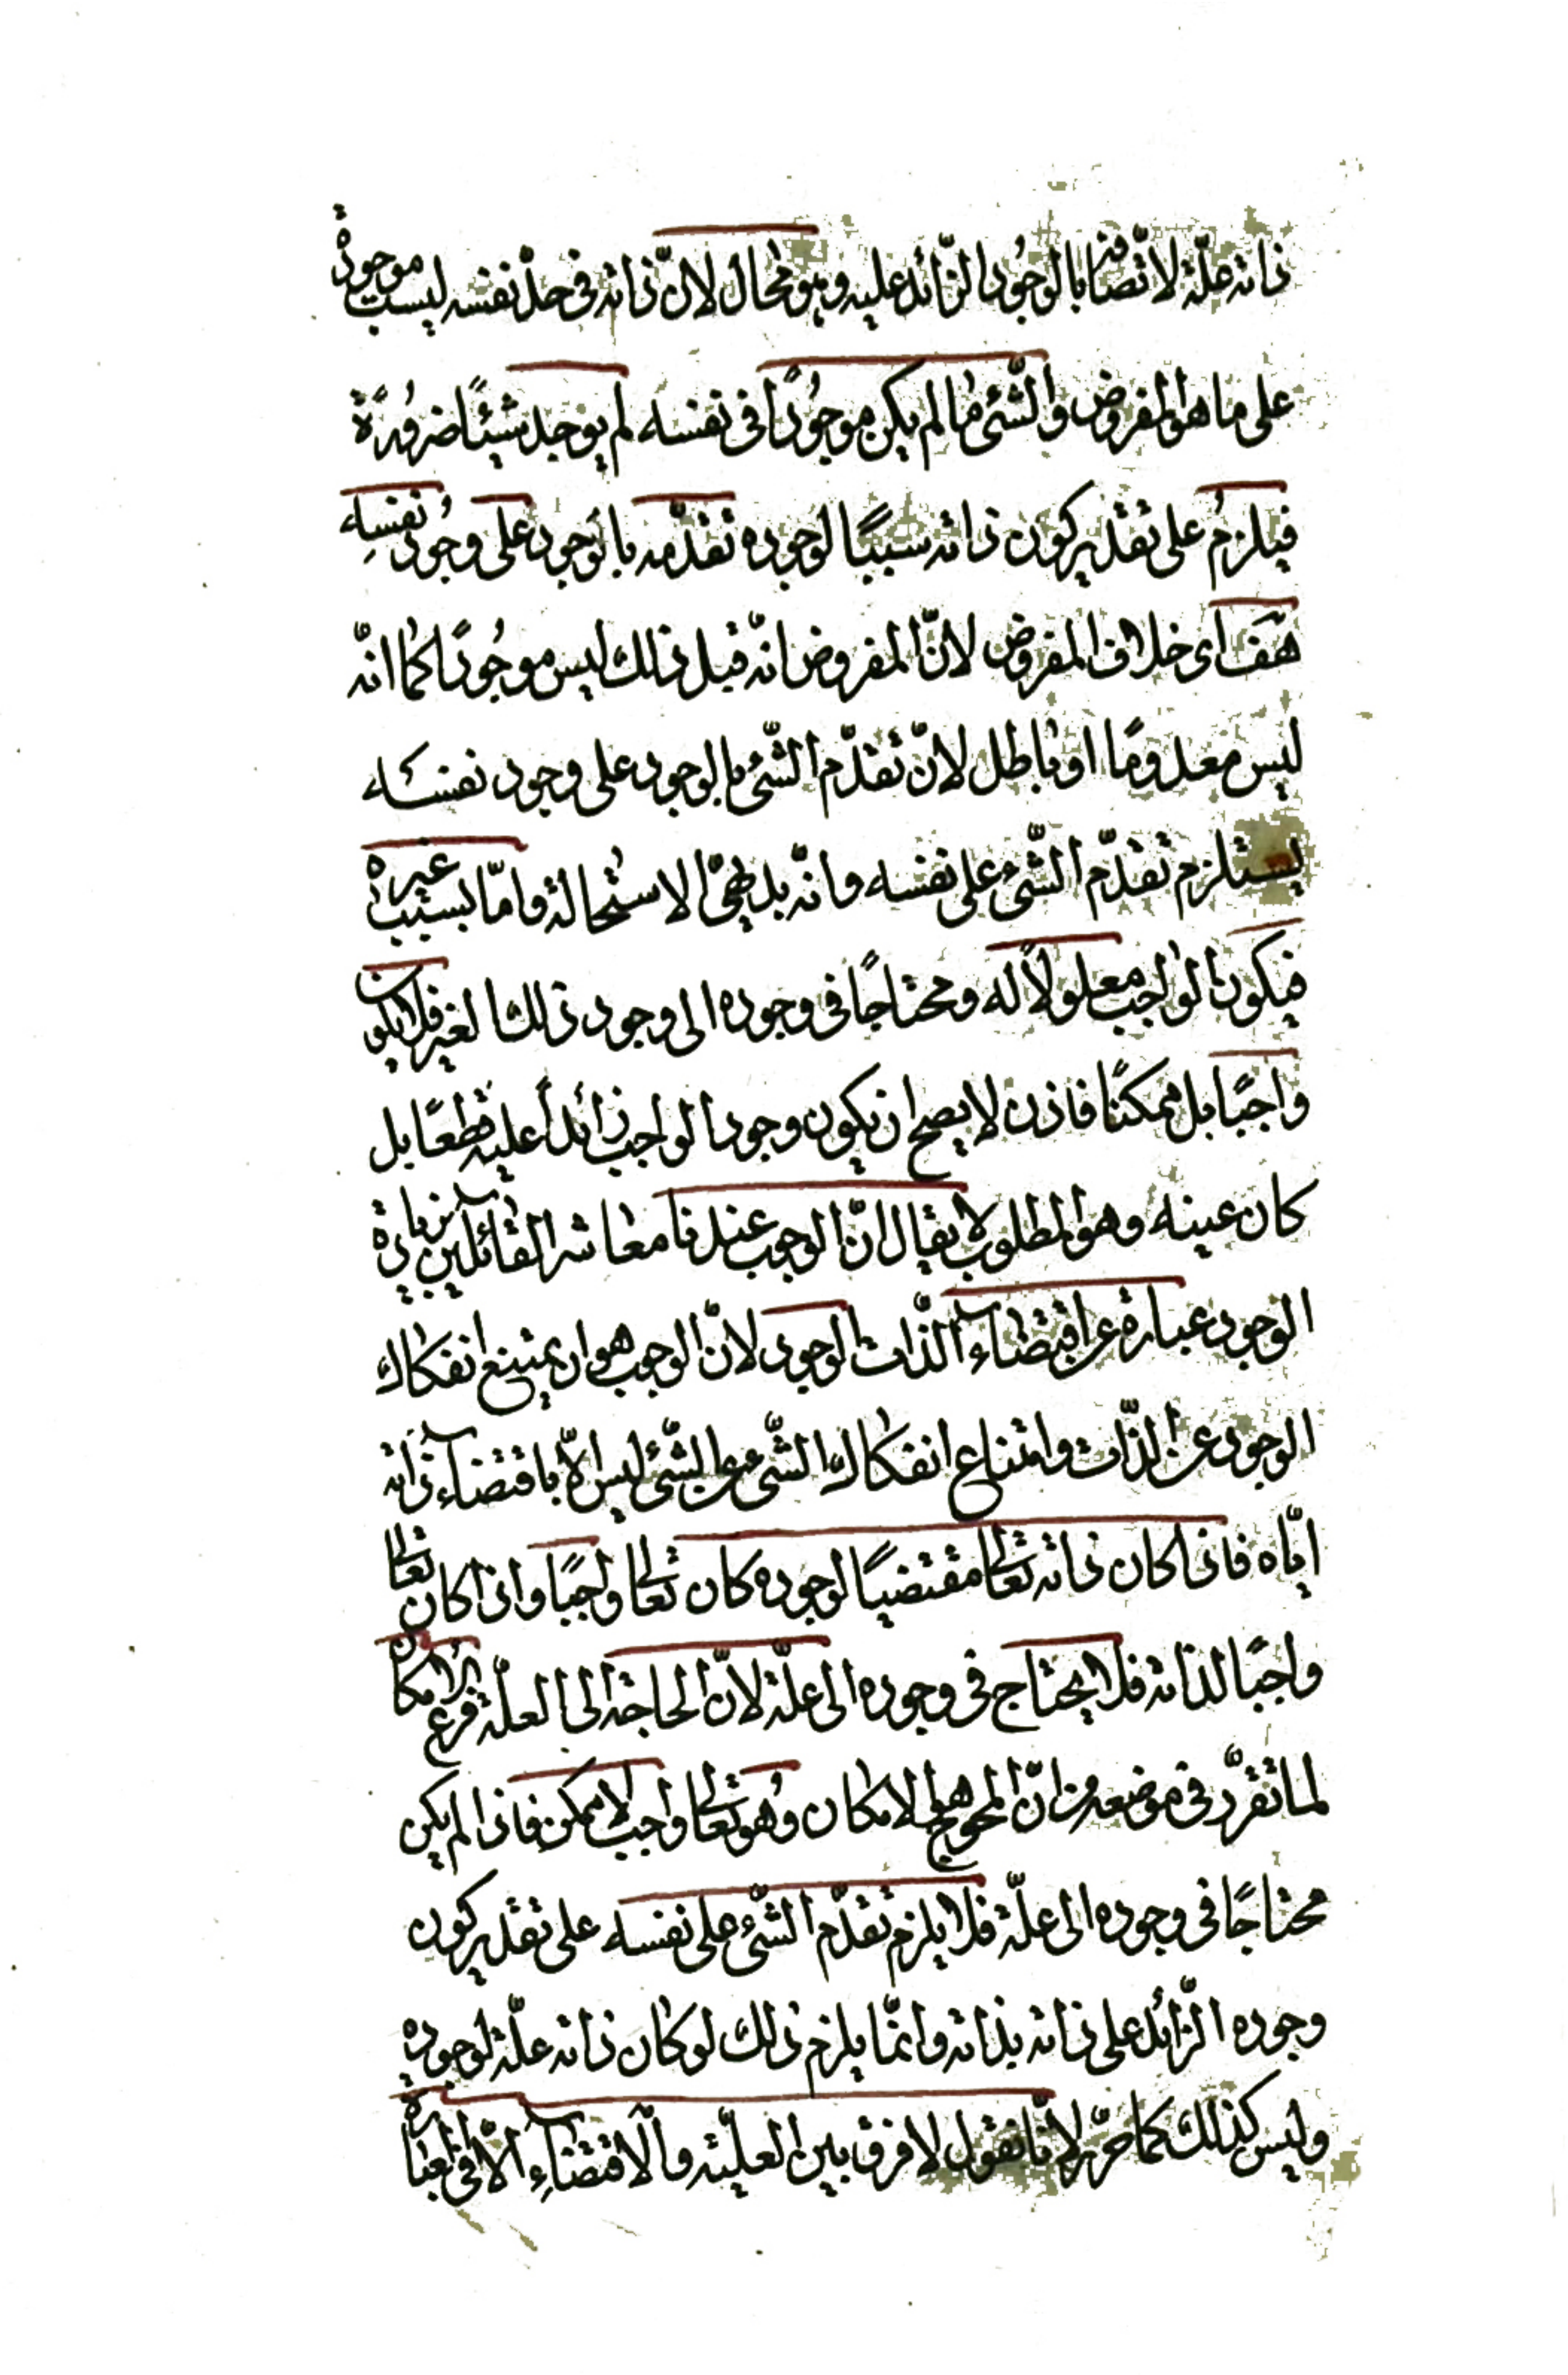 ذاته علّة لاتّصافها بالوجُود الزّائد عليه وهو محال لانّ ذاته فى حدّ نفسه ليست موجودة
على ما هو المفروض والشّئى ما لم يكن موجُودًا فى نفسه لم يوجد شيئًا ضرُورةً
فيلزمُ على تقدير كون ذاته سببًا لوجوده تقدّمه بالوجود على وجُود نفسِه
هَف اى خلاف المفروض لانّ المفروض انّه قبل ذلك ليس موجُودًا كما انّه
ليس معدومًا او باطل لانّ تقدّم الشّئى بالوجود على وجود نفسه
يستلزم تقدّم الشّئى على نفسه وانّه بديهىّ الاستحالة وامّا بسبب غيره
فيكون الواجب معلولاً له ومحتاجًا فى وجوده الى وجود ذلك الغير فلا يكون
واجبًا بل ممكنًا فاذن لا يصح ان يكون وجود الواجب زائداً عليه قطعًا بل
كان عينه وهو المطلوب لا يقال انّ الوجوب عندنا معاشر القائلين بزيادة
الوجود عبارة عن اقتضاء الذّات الوجود لانّ الوجوب هو ان يمتنع انفكاك
الوجود عن الذّات وامتناع انفكاك الشّئى عن الشّئى ليس الاّ باقتضاء ذاته
ايّاه فاذا كان ذاته تعالى مقتضيًا لوجوده كان تعالى واجبًا واذا كان تعالى
واجبًا لذاته فلا يحتاج فى وجوده الى علّة لانّ الحاجة الى العلّة فرع الامكان
لما تقرّر فى موضعه من انّ المحوج هو الامكان وهُو تعالى واجب لا ممكن فاذا لم يكن
محتاجًا فى وجوده الى علّة فلا يلزم تقدّم الشّئى على نفسه على تقدير كون
وجوده الزّائد على ذاته بذاته وانمّا يلزم ذلك لو كان ذاته علّة لوجوده
وليس كذلك كما حرّر لانّا نقول لا فرق بين العلّية والاقتضاءِ الاّ فى العبارة